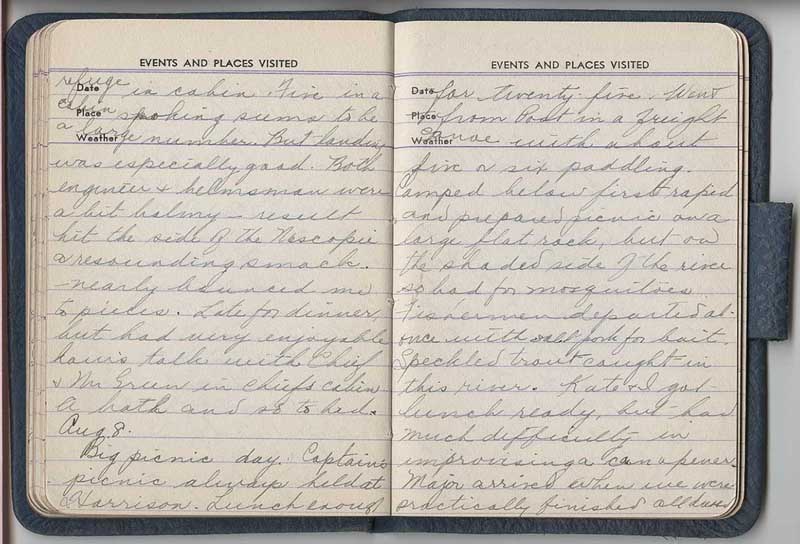 EVENTS AND PLACES VISITED
Date
Place
Weather
refuge in cabin. Five in a
cabin smoking seems to be
a large number. But landing
was especially good. Both
engineer & helmsman were
a bit balmy - result
hit the side of the Nascopie
a resounding smack.
- nearly bounced me
to pieces. Late for dinner,
but had very enjoyable
hours talk with Chief
& Mr Green in Chiefs cabin
A bath and so to bed.
Aug 8.
Big picnic day. Captains
picnic always held at
Harrison. Lunch enough
EVENTS AND PLACES VISITED
Date
Place
Weather
for twenty-five. Went
from Post in a freight
canoe with about
five or six paddling.
amped below first rapid
and prepared picnic on a
large flat rock, but on
the shaded side of the river
so bad for mosquitoes.
Fishermen departed at
once with salt pork for bait.
Speckled trout caught in
this river. Kate & I got
lunch ready, but had
much difficulty in
improvising a can opener.
Major arrived when we were
practically finished all